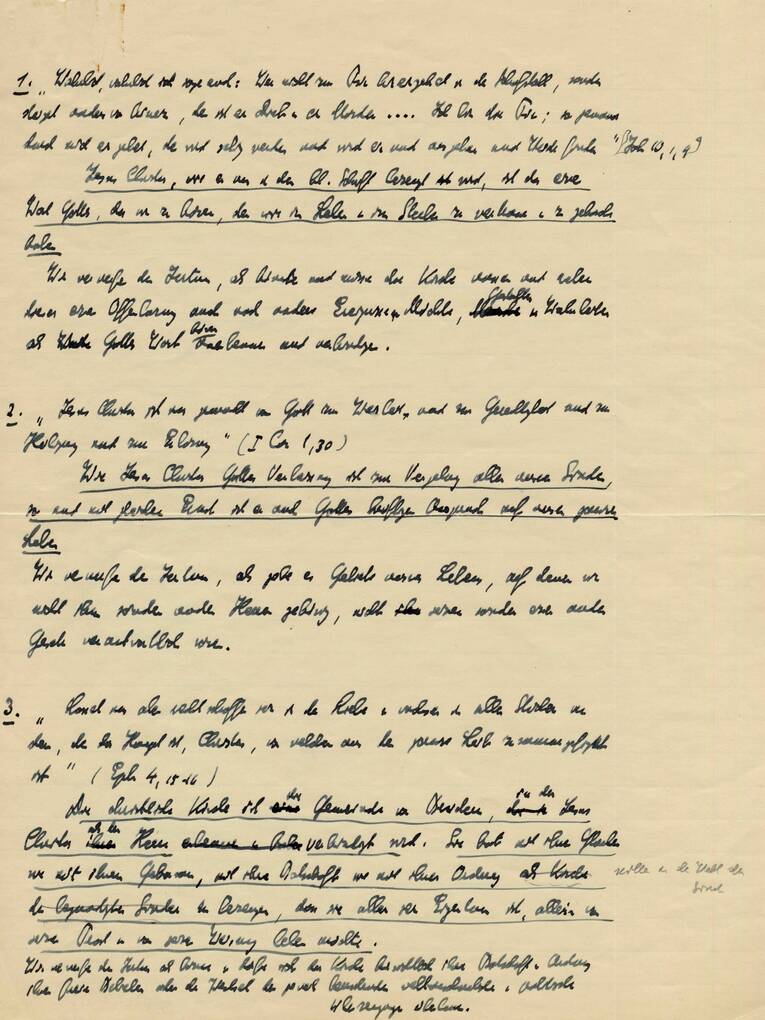 1. „Wahrlich, wahrlich ich sage euch: Wer nicht zur Tür hineingehet in den Schafstall, sondern
steiget anderswo hinein, der ist ein Dieb u. ein Mörder .... Ich bin die Tür; so jemand
durch mich eingehet, der wird selig werden und wird ein und ausgehen und Weide finden" (Joh 10, 1, 9)
Jesus Christus, wie er uns in der hl. Schrift bezeugt wird, ist das eine
Wort Gottes, das wir zu hören, dem wir im Leben u im Sterben zu vertrauen u zu gehorchen
haben
Wir verwerfen den Irrtum, als könnte und müsse die Kirche ausser und neben
diesem einen Offenbarung auch noch andere Ereignisse u Mächte, Gestalten u Wahrheiten
als Gottes Wort anerkennen und verkündigen.
2. „Jesus Christus ist uns gemacht von Gott zur Weisheit und zur Gerechtigkeit und zur
Heiligung und zur Erlösung" (I Cor 1,30)
Wie Jesus Christus Gottes Verheissung ist zur Vergebung aller unserer Sünden,
so und mit gleichem Ernst ist er auch Gottes kräftiger Anspruch auf unser ganzes
Leben
Wir verwerfen den Irrtum, als gebe es Gebiete unseres Lebens, auf denen wir
nicht ihm sondern andern Herren gehörig, nicht seinem sondern einem andern
Gesetz verantwortlich wären.
3. „Lasset uns aber rechtschaffen sein in der Liebe u wachsen in allen Stücken an
dem, der das Haupt ist, Christus, von welchem aus der ganze Leib zusammengefügt
ist" (Eph 4, 15-16)
Die christliche Kirche ist die Gemeinde von Brüdern, in der Jesus
Christus als der Herr verkündigt wird. Sie hat mit ihrem Glauben
wie mit ihrem Gehorsam, mit ihrer Botschaft wie mit ihrer Ordnung als Kirche mitten in der Welt der
Sünde
der begnadigten Sünder zu bezeugen, dass sie allein sein Eigentum ist, allein von
seinem Trost u von seiner Weisung leben möchte.
Wir verwerfen den Irrtum als könne u dürfe sich die Kirche hinsichtlich ihrer Botschaft u Ordnung
ihrem freien Belieben oder dem Wechsel der jeweils herrschenden weltanschaulichen u politischen
Überzeugungen überlassen.